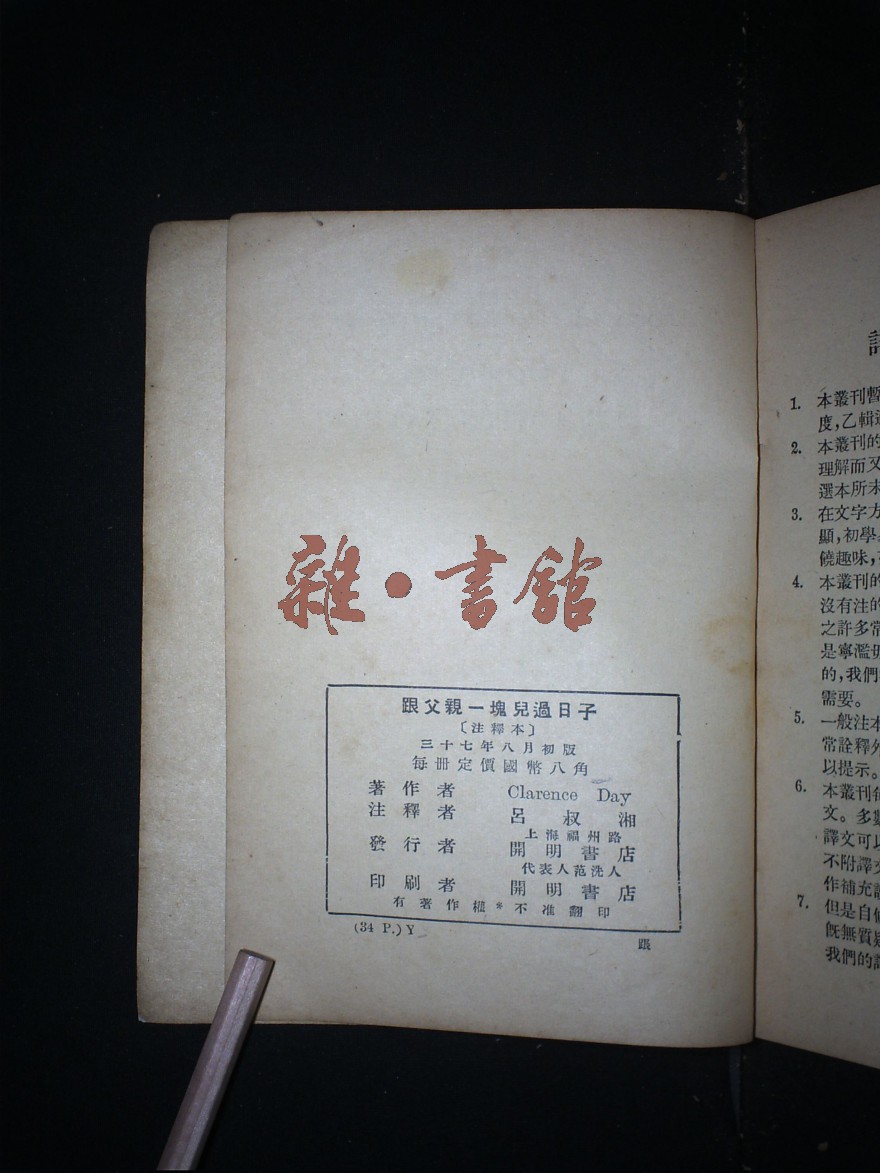 雜·書館
跟父親一塊兒過日子
〔注釋本〕
三十七年八月初版
每冊定價國幣八角
著作者 Clarence Day
注釋者 呂叔湘
上海福州路
發行者 開明書店
代表人范洗人
印刷者 開明書店
有著作權*不准翻印
(34 P.) Y
跟
1. 本叢刊暫
度,乙輯
2. 本叢刊的
理解而又
選本所未
3. 在文字方
顯,初學
饒趣味,
4. 本叢刊的
沒有注的
之許多常
是寧濫毋
的,我們
需要。
5. 一般注本
常詮釋外
以提示。
6. 本叢刊每
文。多數
譯文可以
不附譯文
作補充
7. 但是自修
旣無質疑
我們的